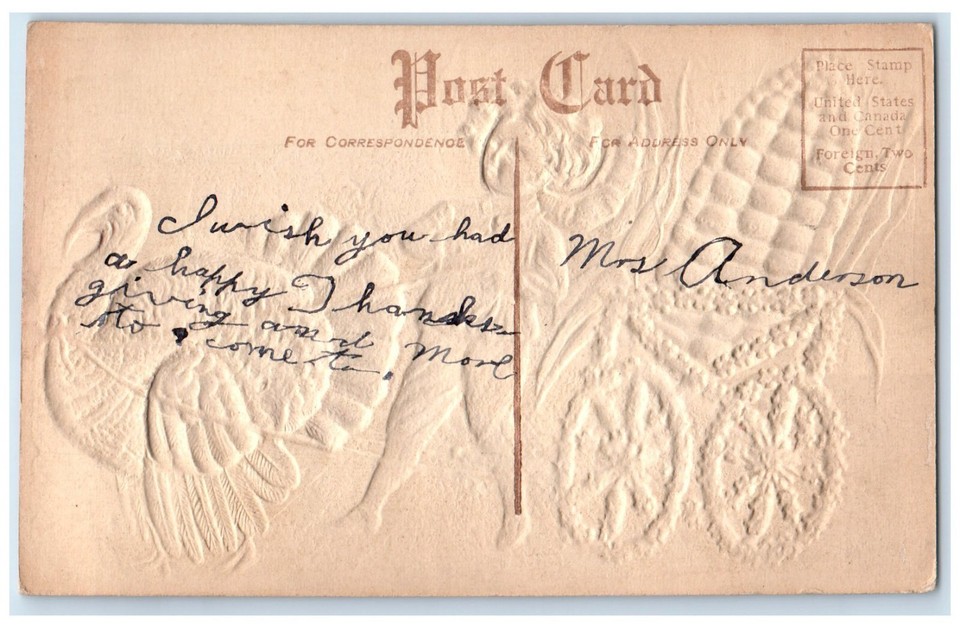 Post Card
FOR CORRESPONDENCE
FOR ADDRESS ONLY
Place Stamp
Here.
United States
and Canada
One Cent
Foreign, Two
Cents
I wish you had
a happy Thanks
giving and
to come to. More
Mrs Anderson